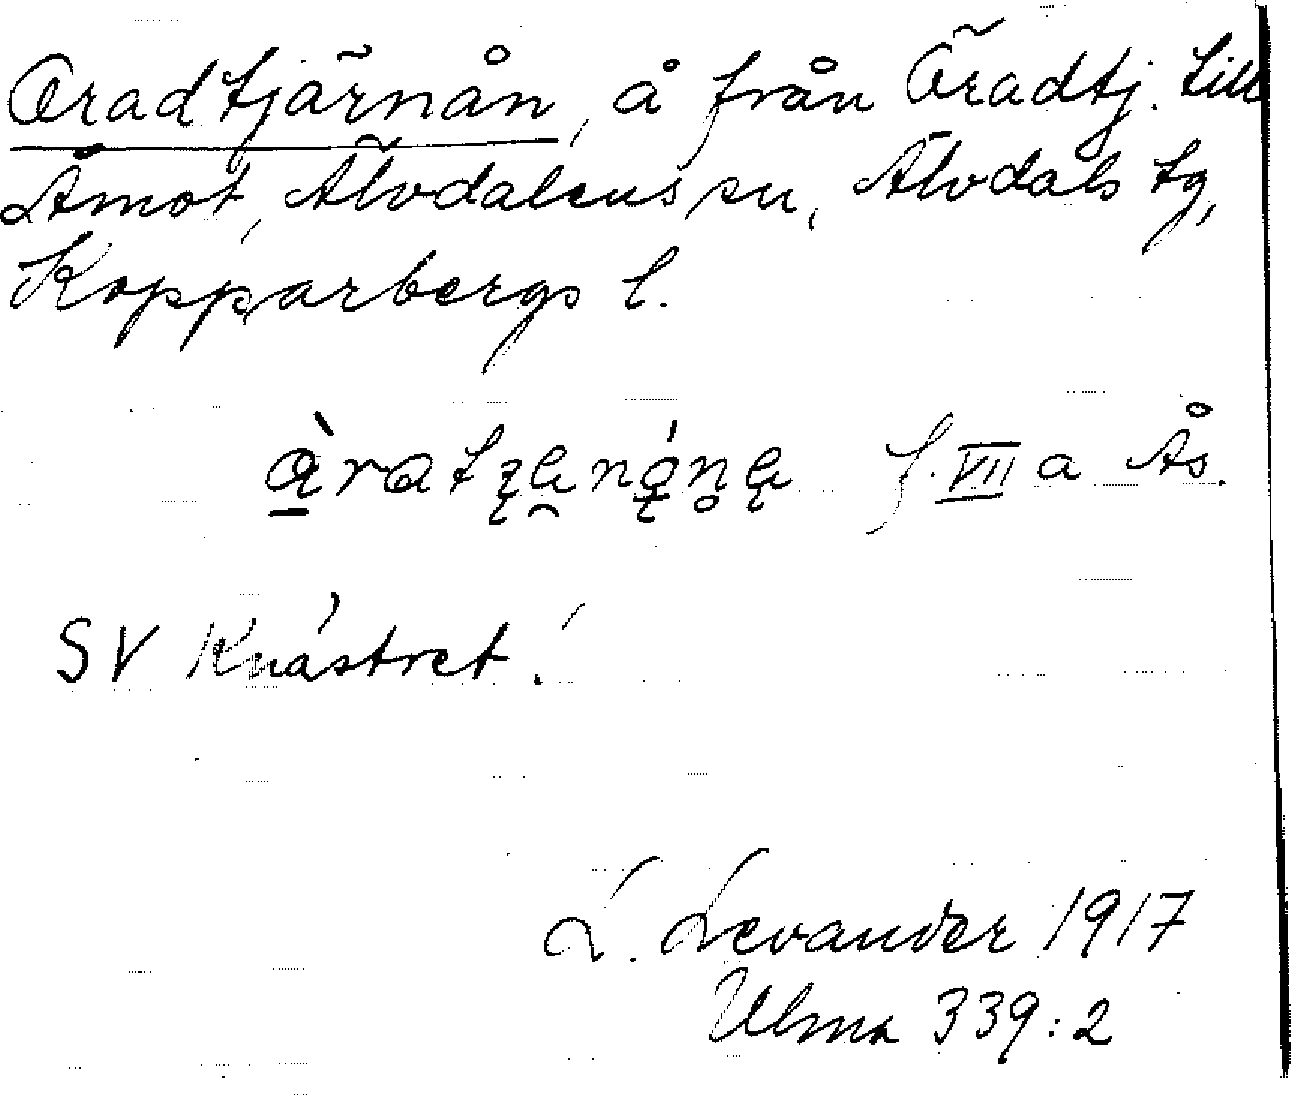 Öradtjärnån, å från Öradtj. till
Åmot, Älvdalens sn, Älvdals tg,
Kopparbergs l.
f. VII a Ås.
SV Knåstret!
L. Levander 1917
Ulma 339:2